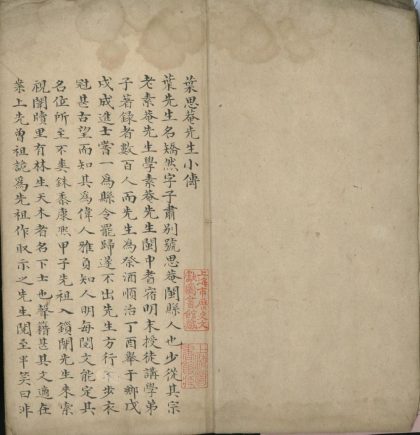 葉思菴先生小傳
葉先生名矯然字子肅別號思菴閩縣人也少從其宗
老素菴先生學素菴先生閩中耆宿明末授徒講學弟
子著錄者數百人而先生為祭酒順治丁酉舉于鄉戊
戌成進士嘗一為縣令罷歸遂不出先生方行矩步衣
冠甚古望而知其為偉人雅負知人明每閱文能定其
名位所至不爽銖黍康熙甲子先祖入鎖闈先生來索
視闈牘里有林生天木者名下士也聲籍甚其文適在
案上先曾祖詭為先祖作取示之先生閱至半笑曰非
上海市歷史文
獻圖書館藏